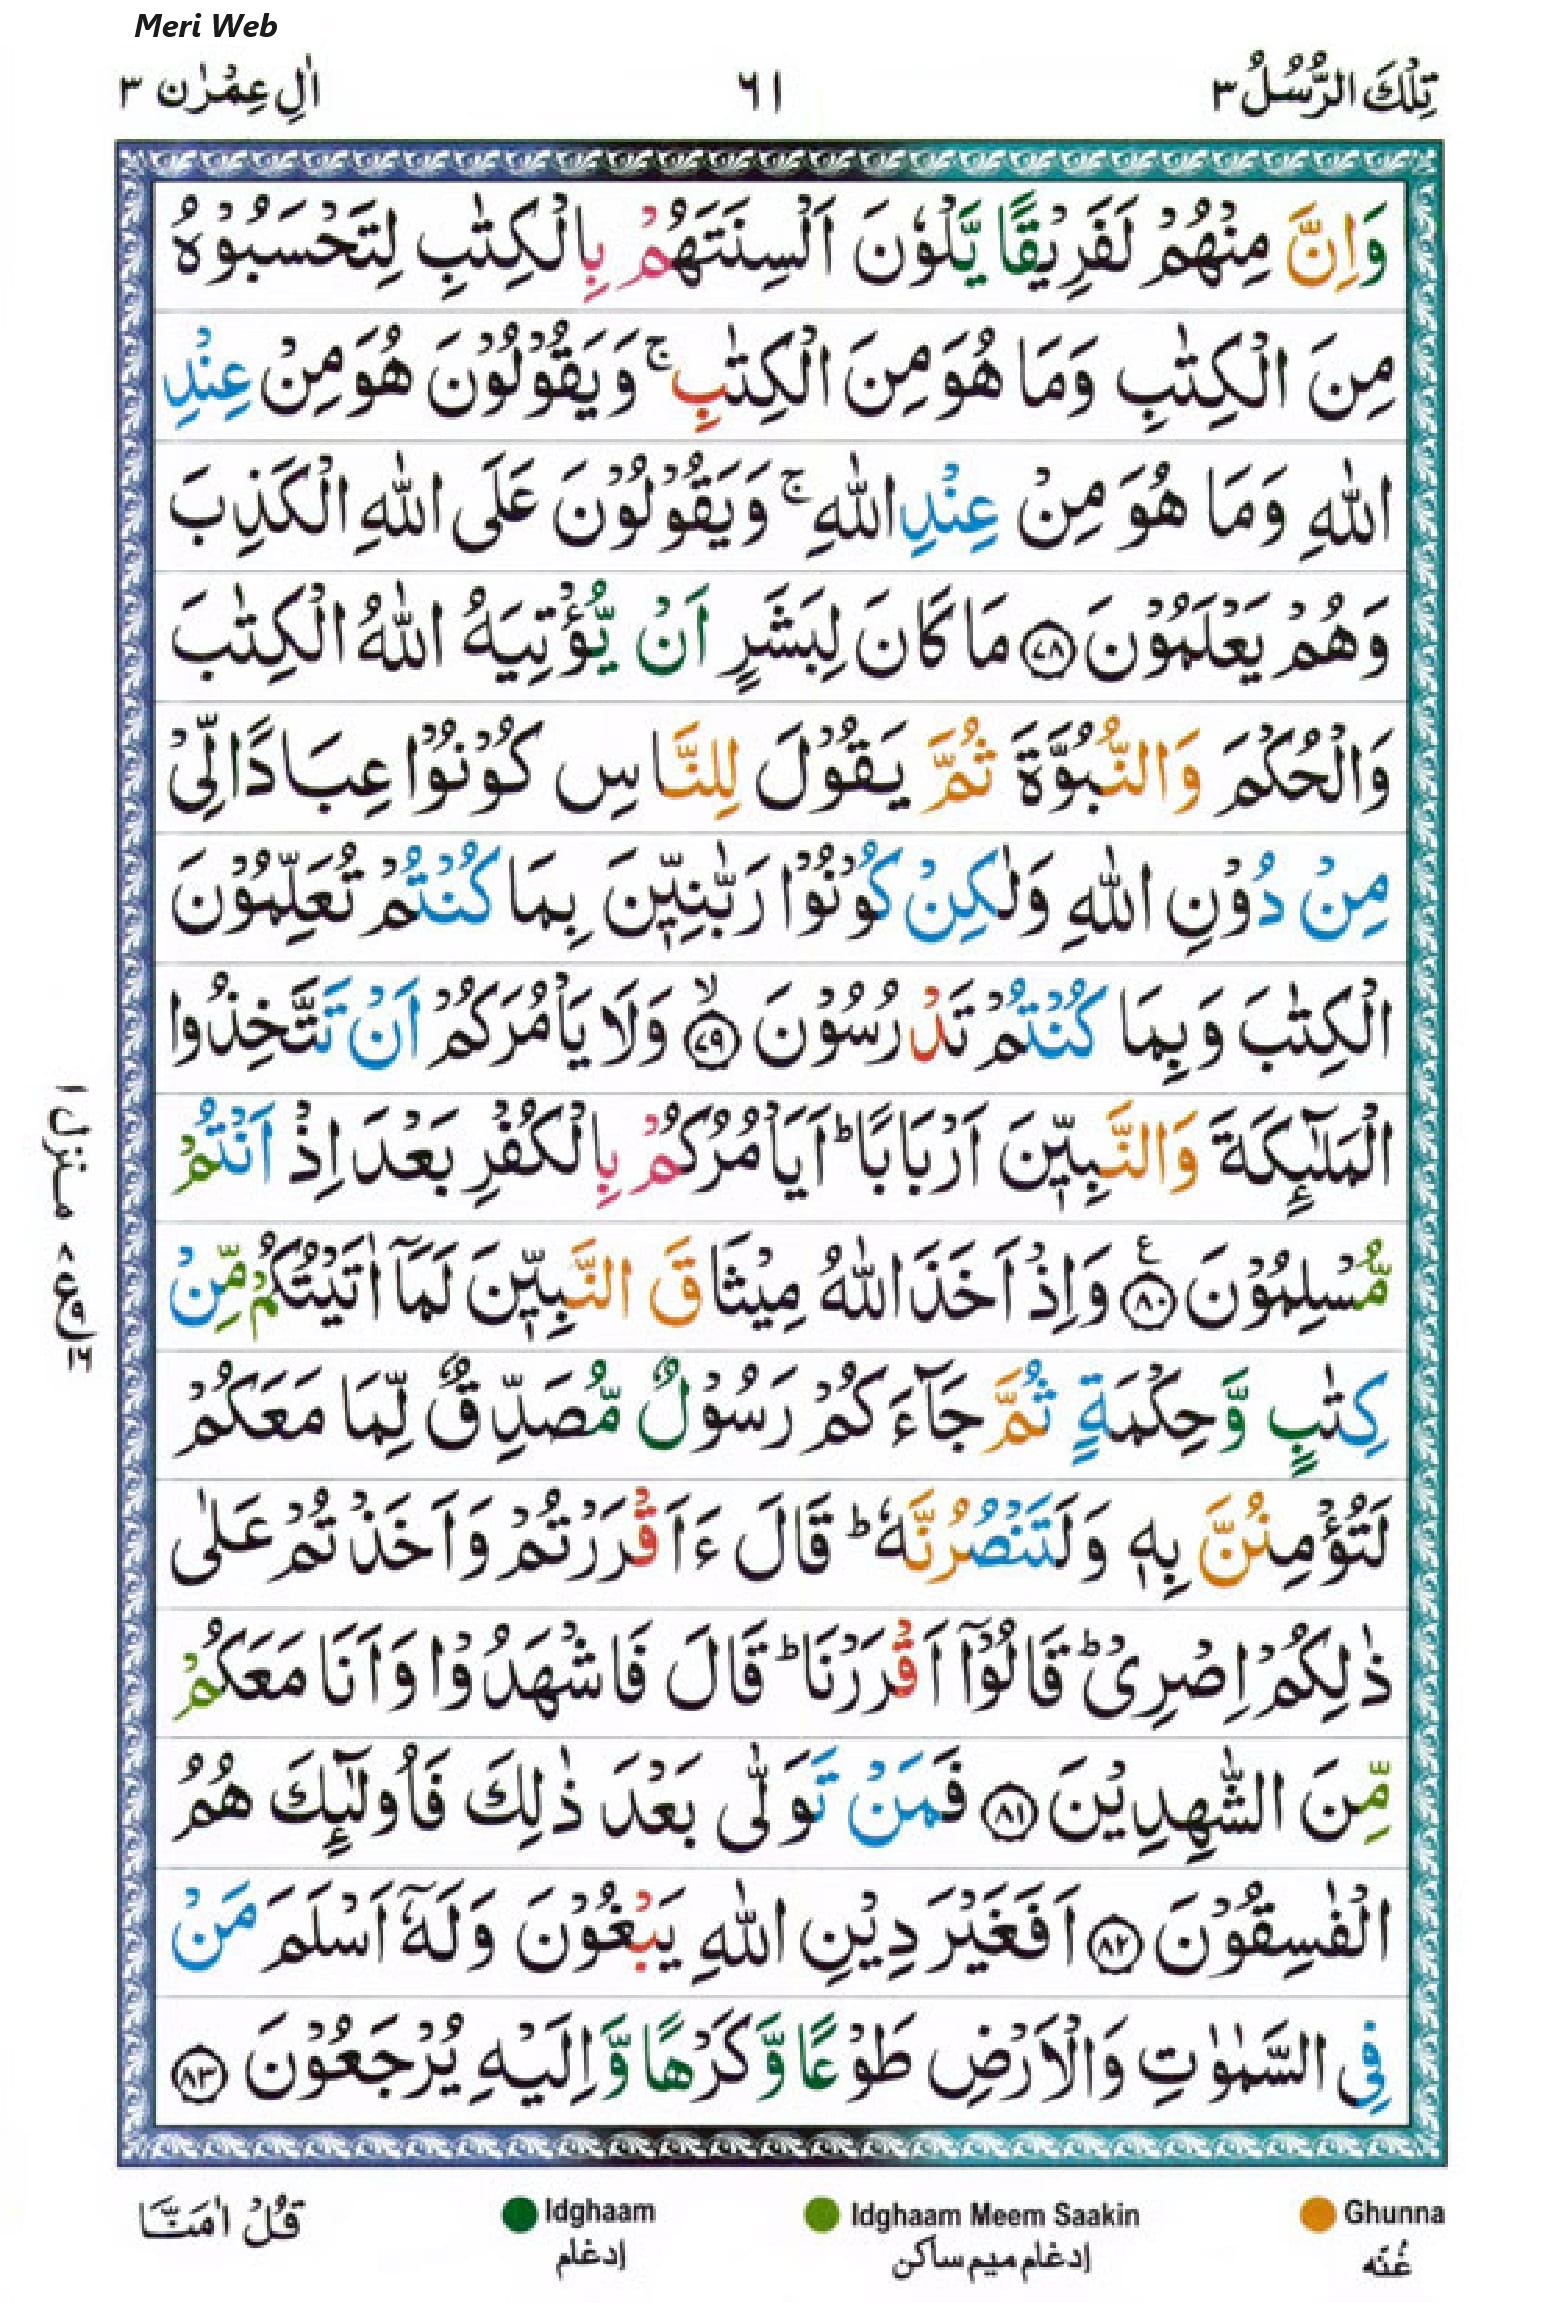 Meri Web
تِلْكَ الرُّسُلُ ٣
٦١
اٰلِ عِمْرٰن ٣
وَاِنَّ مِنْهُمْ لَفَرِيْقًا يَّلْوٗنَ اَلْسِنَتَهُمْ بِالْكِتٰبِ لِتَحْسَبُوْهُ
مِنَ الْكِتٰبِ وَمَا هُوَ مِنَ الْكِتٰبِ ۚ وَيَقُوْلُوْنَ هُوَ مِنْ عِنْدِ
اللّٰهِ وَمَا هُوَ مِنْ عِنْدِ اللّٰهِ ۚ وَيَقُوْلُوْنَ عَلَى اللّٰهِ الْكَذِبَ
وَهُمْ يَعْلَمُوْنَ ﴿٧٨﴾ مَا كَانَ لِبَشَرٍ اَنْ يُّؤْتِيَهُ اللّٰهُ الْكِتٰبَ
وَالْحُكْمَ وَالنُّبُوَّةَ ثُمَّ يَقُوْلَ لِلنَّاسِ كُوْنُوْا عِبَادًا لِّىْ
مِنْ دُوْنِ اللّٰهِ وَلٰكِنْ كُوْنُوْا رَبّٰنِيّٖنَ بِمَا كُنْتُمْ تُعَلِّمُوْنَ
الْكِتٰبَ وَبِمَا كُنْتُمْ تَدْرُسُوْنَ ﴿٧٩﴾ۙ وَلَا يَاْمُرَكُمْ اَنْ تَتَّخِذُوا
الْمَلٰٓئِكَةَ وَالنَّبِيّٖنَ اَرْبَابًا ؕ اَيَاْمُرُكُمْ بِالْكُفْرِ بَعْدَ اِذْ اَنْتُمْ
مُّسْلِمُوْنَ ﴿٨٠﴾ۧ وَاِذْ اَخَذَ اللّٰهُ مِيْثَاقَ النَّبِيّٖنَ لَمَاۤ اٰتَيْتُكُمْ مِّنْ
كِتٰبٍ وَّحِكْمَةٍ ثُمَّ جَآءَكُمْ رَسُوْلٌ مُّصَدِّقٌ لِّمَا مَعَكُمْ
لَتُؤْمِنُنَّ بِهٖ وَلَتَنْصُرُنَّهٗ ؕ قَالَ ءَاَقْرَرْتُمْ وَاَخَذْتُمْ عَلٰى
ذٰلِكُمْ اِصْرِىْ ؕ قَالُوْۤا اَقْرَرْنَا ؕ قَالَ فَاشْهَدُوْا وَاَنَا مَعَكُمْ
مِّنَ الشّٰهِدِيْنَ ﴿٨١﴾ فَمَنْ تَوَلّٰى بَعْدَ ذٰلِكَ فَاُولٰٓئِكَ هُمُ
الْفٰسِقُوْنَ ﴿٨٢﴾ اَفَغَيْرَ دِيْنِ اللّٰهِ يَبْغُوْنَ وَلَهٗۤ اَسْلَمَ مَنْ
فِى السَّمٰوٰتِ وَالْاَرْضِ طَوْعًا وَّكَرْهًا وَّاِلَيْهِ يُرْجَعُوْنَ ﴿٨٣﴾
منزل ١
قُلْ اٰمَنَّا
Idghaam
إدغام
Idghaam Meem Saakin
إدغام ميم ساكن
Ghunna
غُنّه